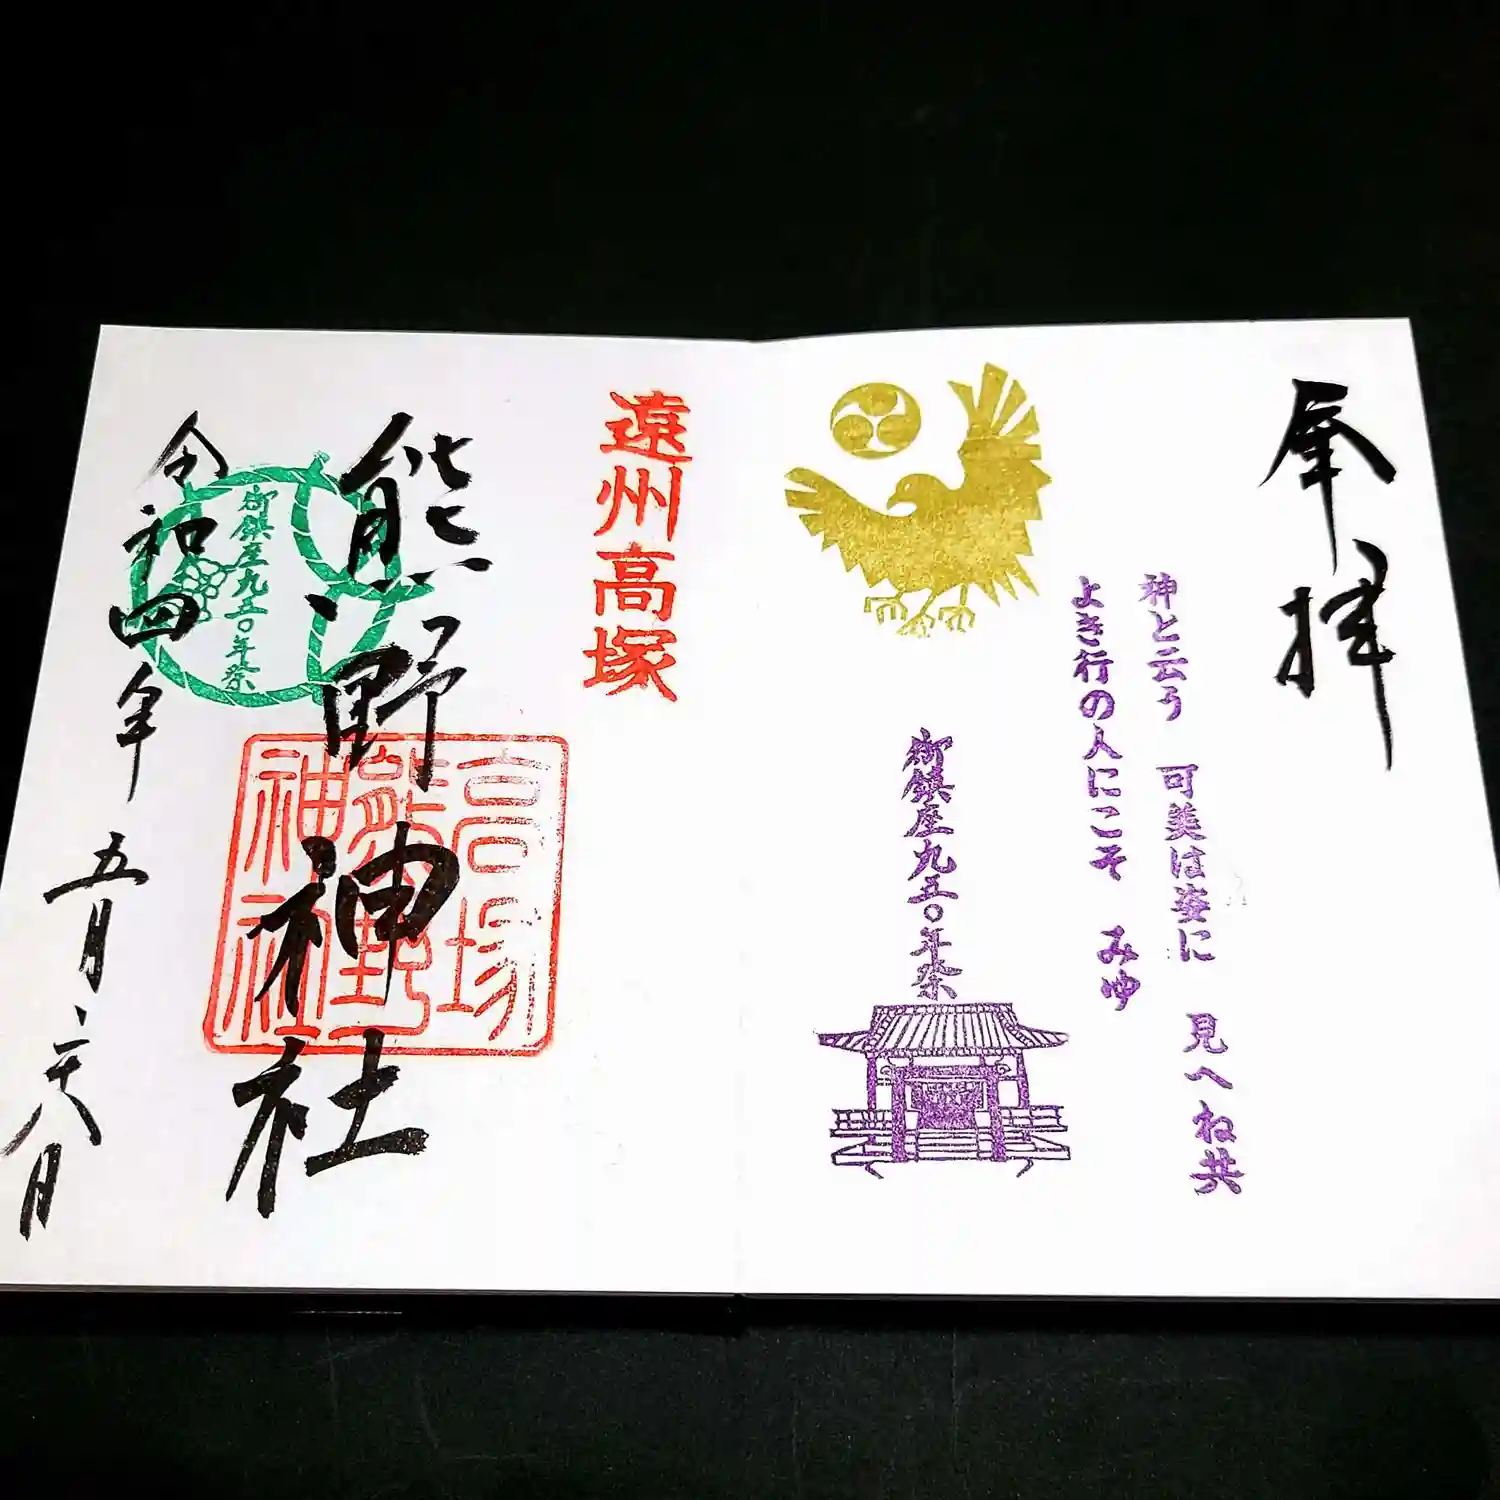 奉拝
神と云う 可美は姿に 見へね共
よき行の人にこそ みゆ
御鎮座九五〇年祭
遠州高塚
熊野神社
高塚
熊野
神社
御鎮座九五〇年祭
令和四年 五月二十八日